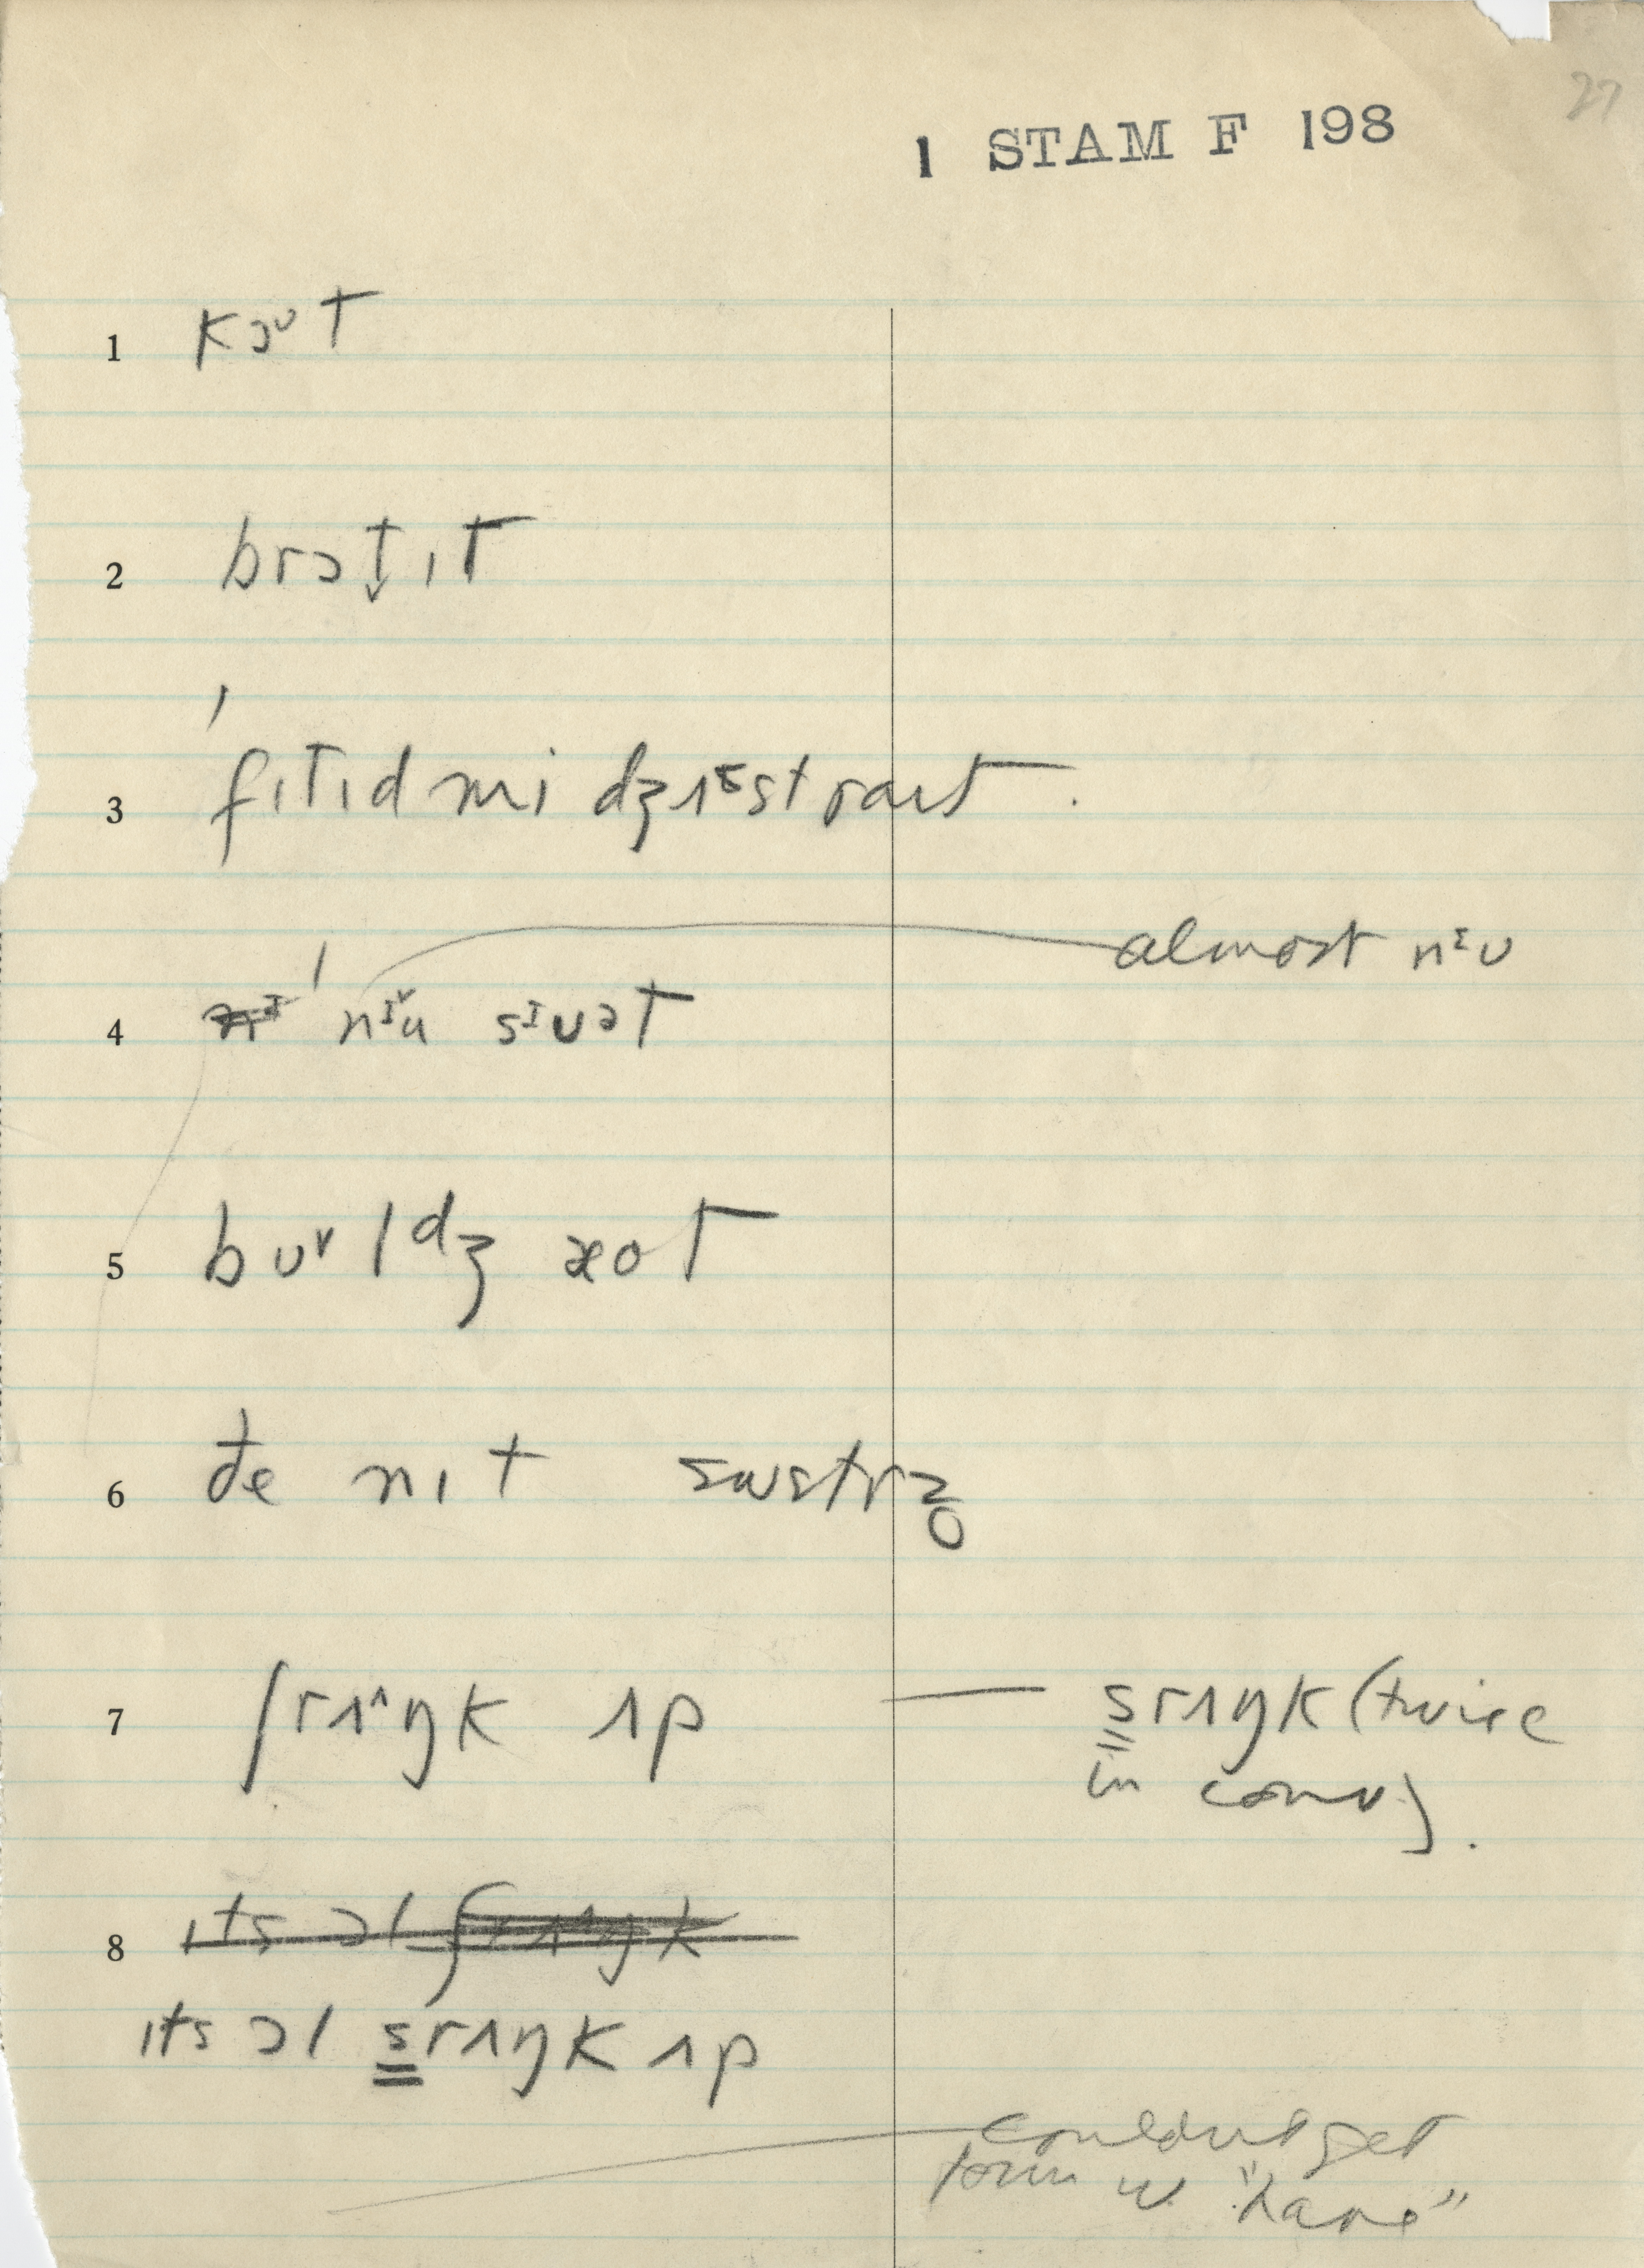 27
1 STAM F 198
1 kɔᴜt
2 brɔt̬ɪt
3 ˈfɪtɪd mi dʒʌᵋst raɪt.
4 ˈnᴵ˅u sᴵuət — almost nᴵᴜ
5 bᴜ˅lᵈʒ æot
6 đe nɪt swɛtrz̥
7 ʃrʌ^ŋk ʌp — s̳rʌŋk (twice
in conv).
8 ɪts ɔl ʃrʌŋk
ɪts ɔl s̳rʌŋk ʌp
couldnt get
form w "have"